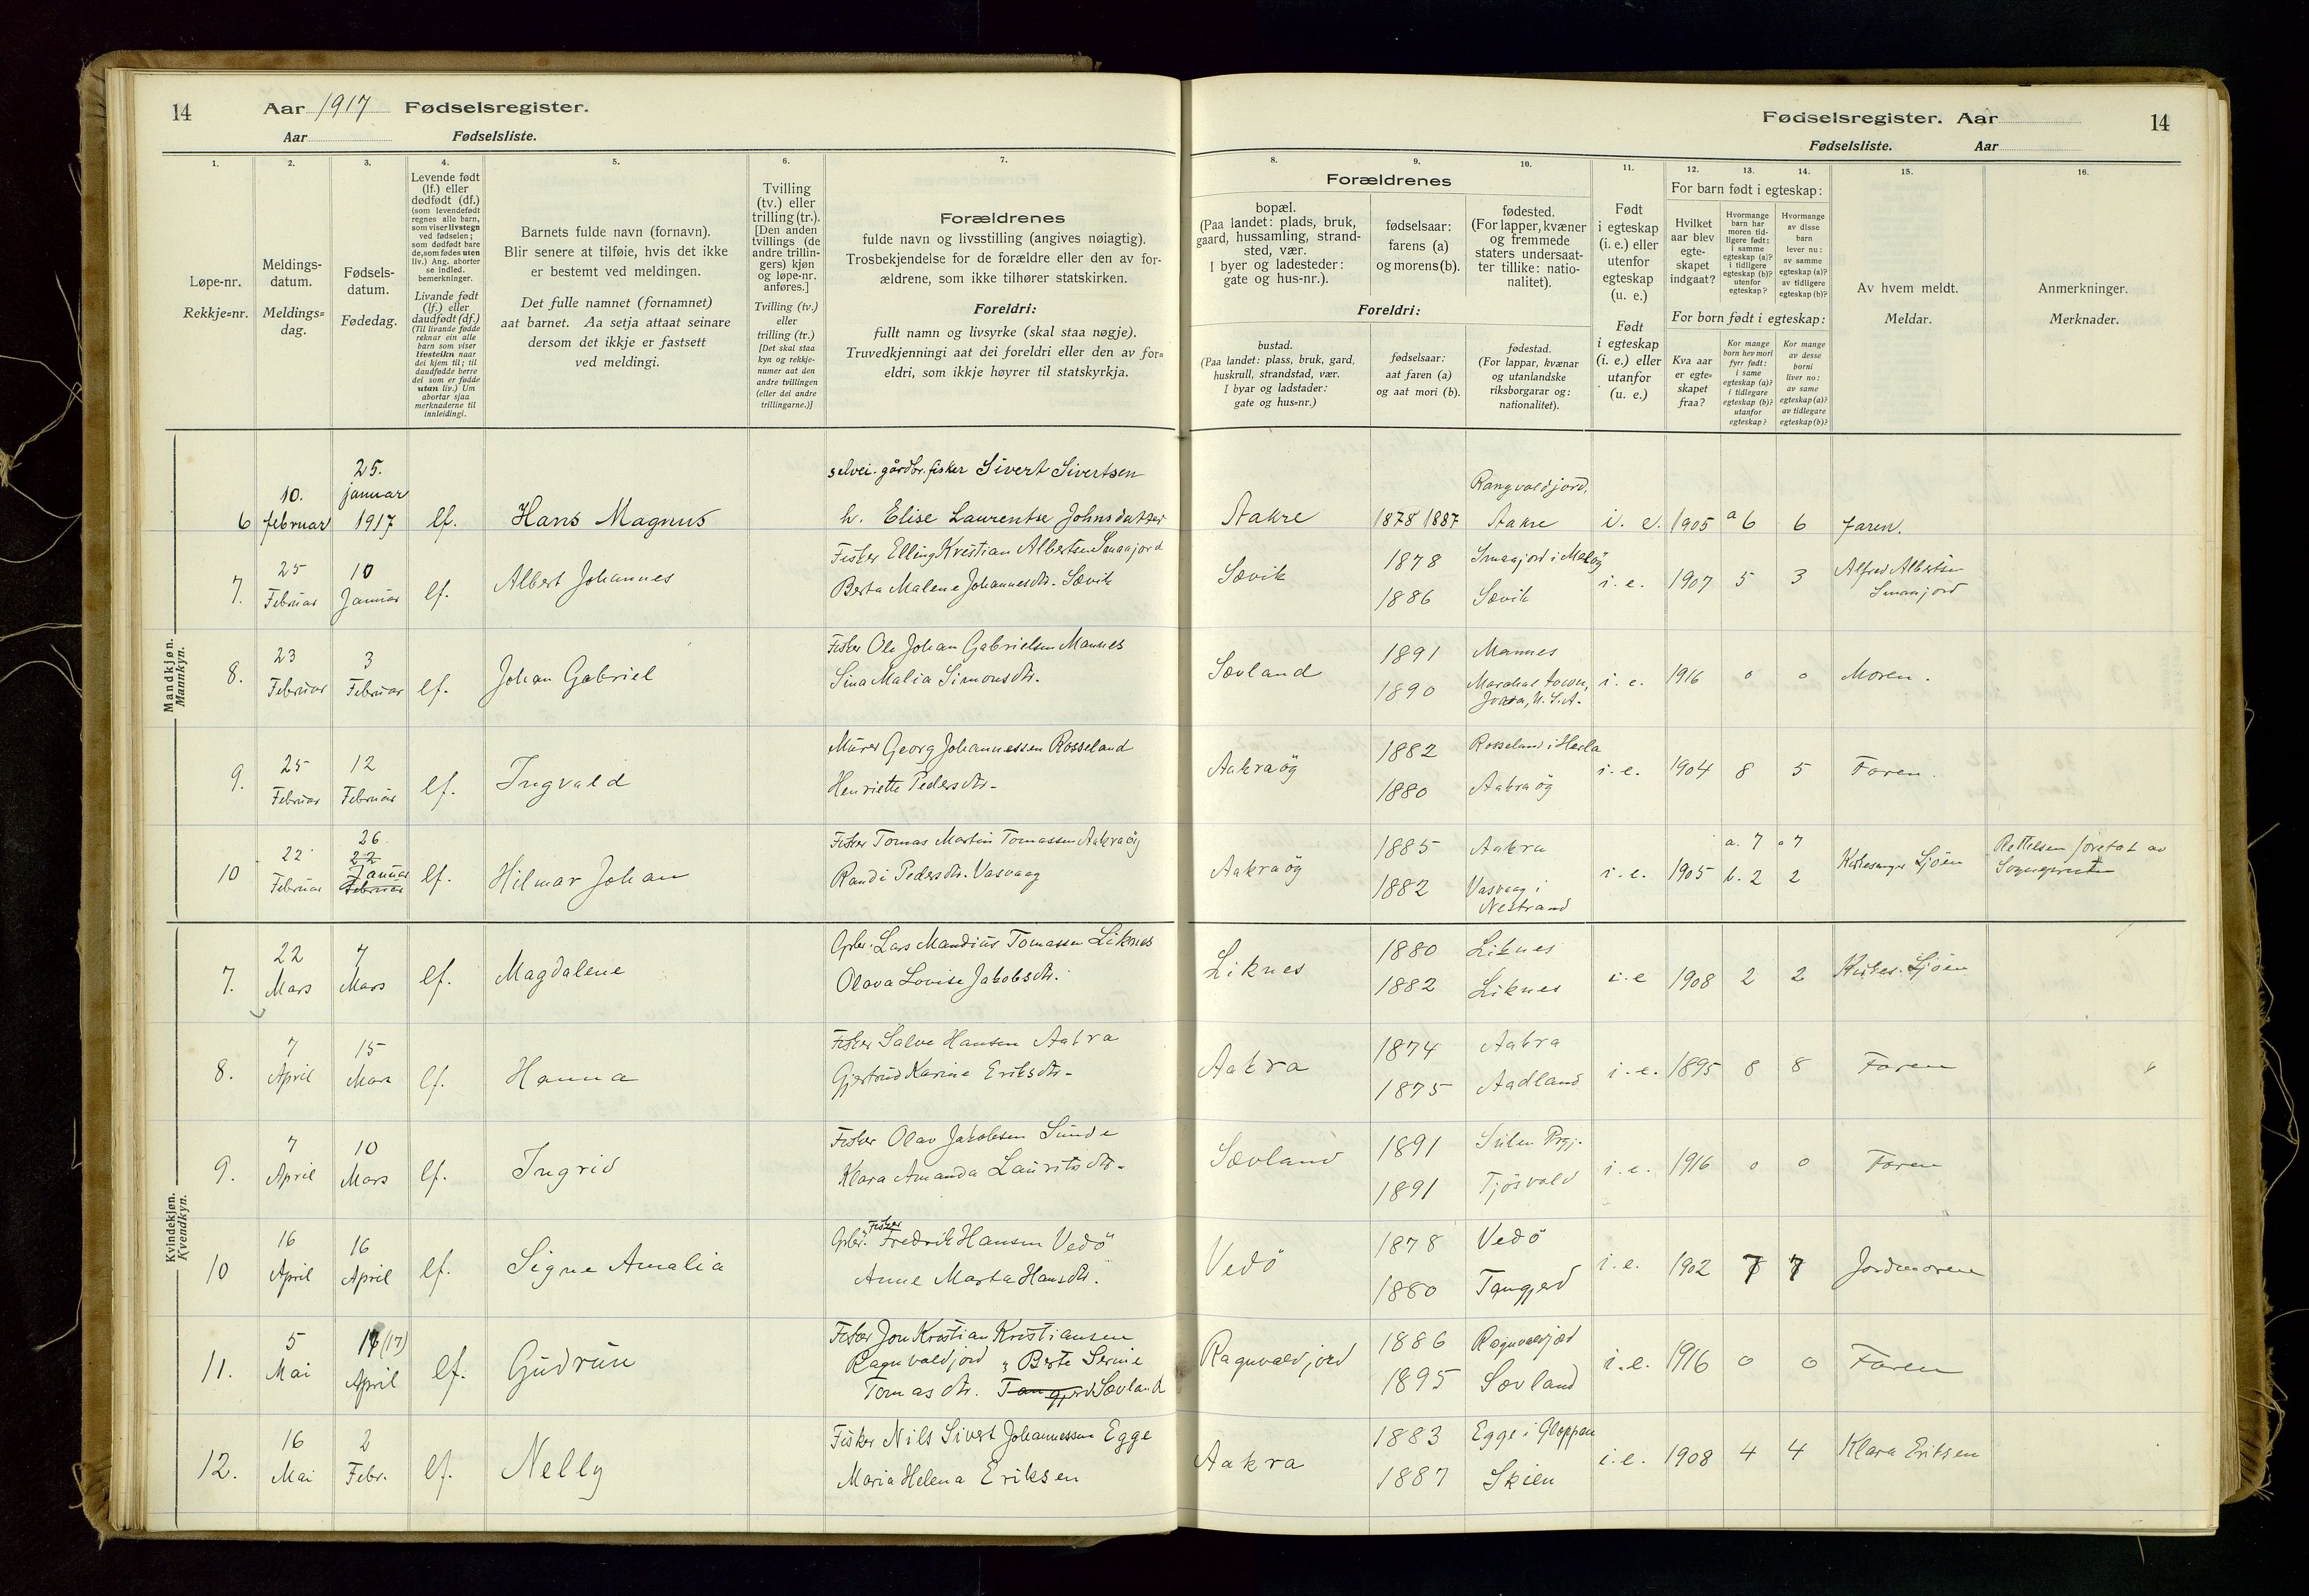 14 Aar 1917 Fødselsregister.
Aar Fødselsliste.
Fødselsregister. Aar 14
Fødselsliste. Aar
1. 2. 3. 4. 5. 6. 7. 8. 9. 10. 11. 12. 13. 14. 15. 16.
Løpe-nr.
Rekkje=nr.
Meldings-
datum.
Meldings=
dag.
Fødsels-
datum.
Fødedag.
Levende født
(lf.) eller
dødfødt (df.)
(som levendefødt
regnes alle barn,
som viser livstegn
ved fødselen;
som dødfødt bare
de, som fødes uten
liv.) Ang. aborter
se indled.
bemerkninger.
Livande født
(lf.) eller
daudfødt (df.)
(Til livande fødde
reknar ein alle
barn som viser
livsteikn naar
dei kjem til; til
daudfødde berre
dei som er fødde
utan liv.) Um
abortar sjaa
merknaderne til
innleidingi.
Barnets fulde navn (fornavn).
Blir senere at tilføie, hvis det ikke
er bestemt ved meldingen.
Det fulle namnet (fornamnet)
aat barnet. Aa setja attaat seinare
dersom det ikkje er fastsett
ved meldingi.
Tvilling
(tv.) eller
trilling (tr.).
[Den anden
tvillings (de
andre trillin-
gers) kjøn
og løpe-nr.
anføres.]
Tvilling (tv.)
eller
trilling (tr.)
[Det skal staa
kyn og rekkje-
numer aat den
andre tvillingen
(eller dei andre
trillingarne.)]
Forældrenes
fulde navn og livsstilling (angives nøiagtig).
Trosbekjendelse for de forældre eller den av for-
ældrene, som ikke tilhører statskirken.
Foreldri:
fullt namn og livsyrke (skal staa nøgje).
Truvedkjenningi aat dei foreldri eller den av for=
eldri, som ikkje høyrer til statskyrkja.
Forældrenes
bopæl.
(Paa landet: plads, bruk,
gaard, hussamling, strand-
sted, vær.
I byer og ladesteder:
gate og hus-nr.).
fødselsaar:
farens (a)
og morens (b).
fødested.
(For lapper, kvæner
og fremmede
staters undersaat-
ter tillike: natio-
nalitet).
Foreldri:
bustad.
(Paa landet: plass, bruk, gard,
huskrull, strandstad, vær.
I byar og ladstader:
gate og hus=nr.)
fødselsaar:
aat faren (a)
og aat mori (b).
fødestad.
(For lappar, kvænar
og utanlandske
riksborgarar og:
nationalitet).
Født
i egteskap
(i. e.) eller
utenfor
egteskap
(u. e.)
Født
i egteskap
(i. e.) eller
utanfor
(u. e.)
For barn født i egteskap:
Hvilket
aar blev
egte-
skapet
indgaat?
Hvormange
barn har
moren tid-
ligere født:
i samme
egteskap (a)?
i tidligere
egteskap (b)?
utenfor
egteskap?
Hvormange
av disse
barn
lever nu:
av samme
egteskap (a)?
av tidligere
egteskap (b)?
For born født i egteskap:
Kva aar
er egte=
skapet
fraa?
Kor mange
born hev mori
fyrr født:
i same
egteskap (a)?
i tidlegare
egteskap (b)?
utanfor
egteskap?
Kor mange
av desse
borni
liver no:
av same
egteskap (a)?
av tidlegare
egteskap (b)?
Av hvem meldt.
Meldar.
Anmerkninger.
Merknader.
Mandkjøn.
Mannkyn.
6 10. februar 25. januar 1917 lf. Hans Magnus
selvei. gårdbr. fisker Sivert Sivertsen
h. Elise Laurentse Johnsdatter
Aakre 1878 1887 Rangvaldjord. Aakre i. e. 1905 a 6 6 faren.
7. 25 Februar 10 Januar lf. Albert Johannes
Fisker Elling Kristian Albertsen Smaajord
Berta Malene Johannesdtr. Sævik
Sævik 1878 1886 Smaajord i Meløy Sævik i. e. 1907 5 3 Alfred Albertsen Smaajord
8. 23 Februar 3 Februar lf. Johan Gabriel
Fisker Ole Johan Gabrielsen Mannes
Sina Malia Simonsdtr.
Sævland 1891 1890 Mannes Marshal town, Jowa, U. S. A. i. e. 1916 0 0 Moren.
9. 25 Februar 12 Februar lf. Ingvald
Murer Georg Johannessen Rosseland
Henriette Pedersdtr.
Aakraög 1882 1880 Rosseland i Herla Aakraög i. e. 1904 8 5 Faren.
10 22 Februar 26 22 Januar Februar lf. Hilmar Johan
Fisker Tomas Martin Tomassen Aakraög
Randi Pedersdtr. Vasvaag
Aakraög 1885 1882 Aakra Vasvaag i Nestrand i. e. 1905 a. 7 b. 2 a 7 2 Kirkesanger Sjöen Rettelsen foretat av Sognepresten
Kvindekjøn.
Kvendkyn.
7. 22 Mars 7 Mars lf. Magdalene
Gbr. Lars Mandius Tomassen Liknes
Olava Lovise Jakobsdtr.
Liknes 1880 1882 Liknes Liknes i. e 1908 2 2 Kirkes. Sjöen
8. 7 April 15 Mars lf. Hanna
Fisker Salve Hansen Aakra
Gjertrud Karine Eriksdtr.
Aakra 1874 1875 Aakra Aadland i. e. 1895 8 8 Faren
9. 7 April 10 Mars lf. Ingrid
Fisker Olav Jakobsen Sunde
Klara Amanda Lauritsdtr.
Sævland 1891 1891 Tjösvold i. e. 1916 0 0 Faren
10 16 April 16 April lf. Signe Amalia
Gbr. Fisker Fredrik Hansen Vedö
Anne Marta Hansdtr.
Vedö 1878 1880 Vedö Tangjerd i. e. 1902 7 7 Jordmoren
11. 5 Mai (17) April lf. Gudrun
Fisker Jon Kristian Kristiansen
Ragnvaldjord " Berte Serine
Tomasdtr. Tangjerd Sævland
Ragnvaldjord 1886 1895 Ragnvaldjord Sævland i. e. 1916 0 0 Faren
12. 16 Mai 2 Febr. lf. Nelly
Fisker Nils Sivert Johannessen Egge
Maria Helena Eriksen
Aakra 1883 1887 Egge i Gloppen Skien i. e. 1908 4 4 Klara Eriksen